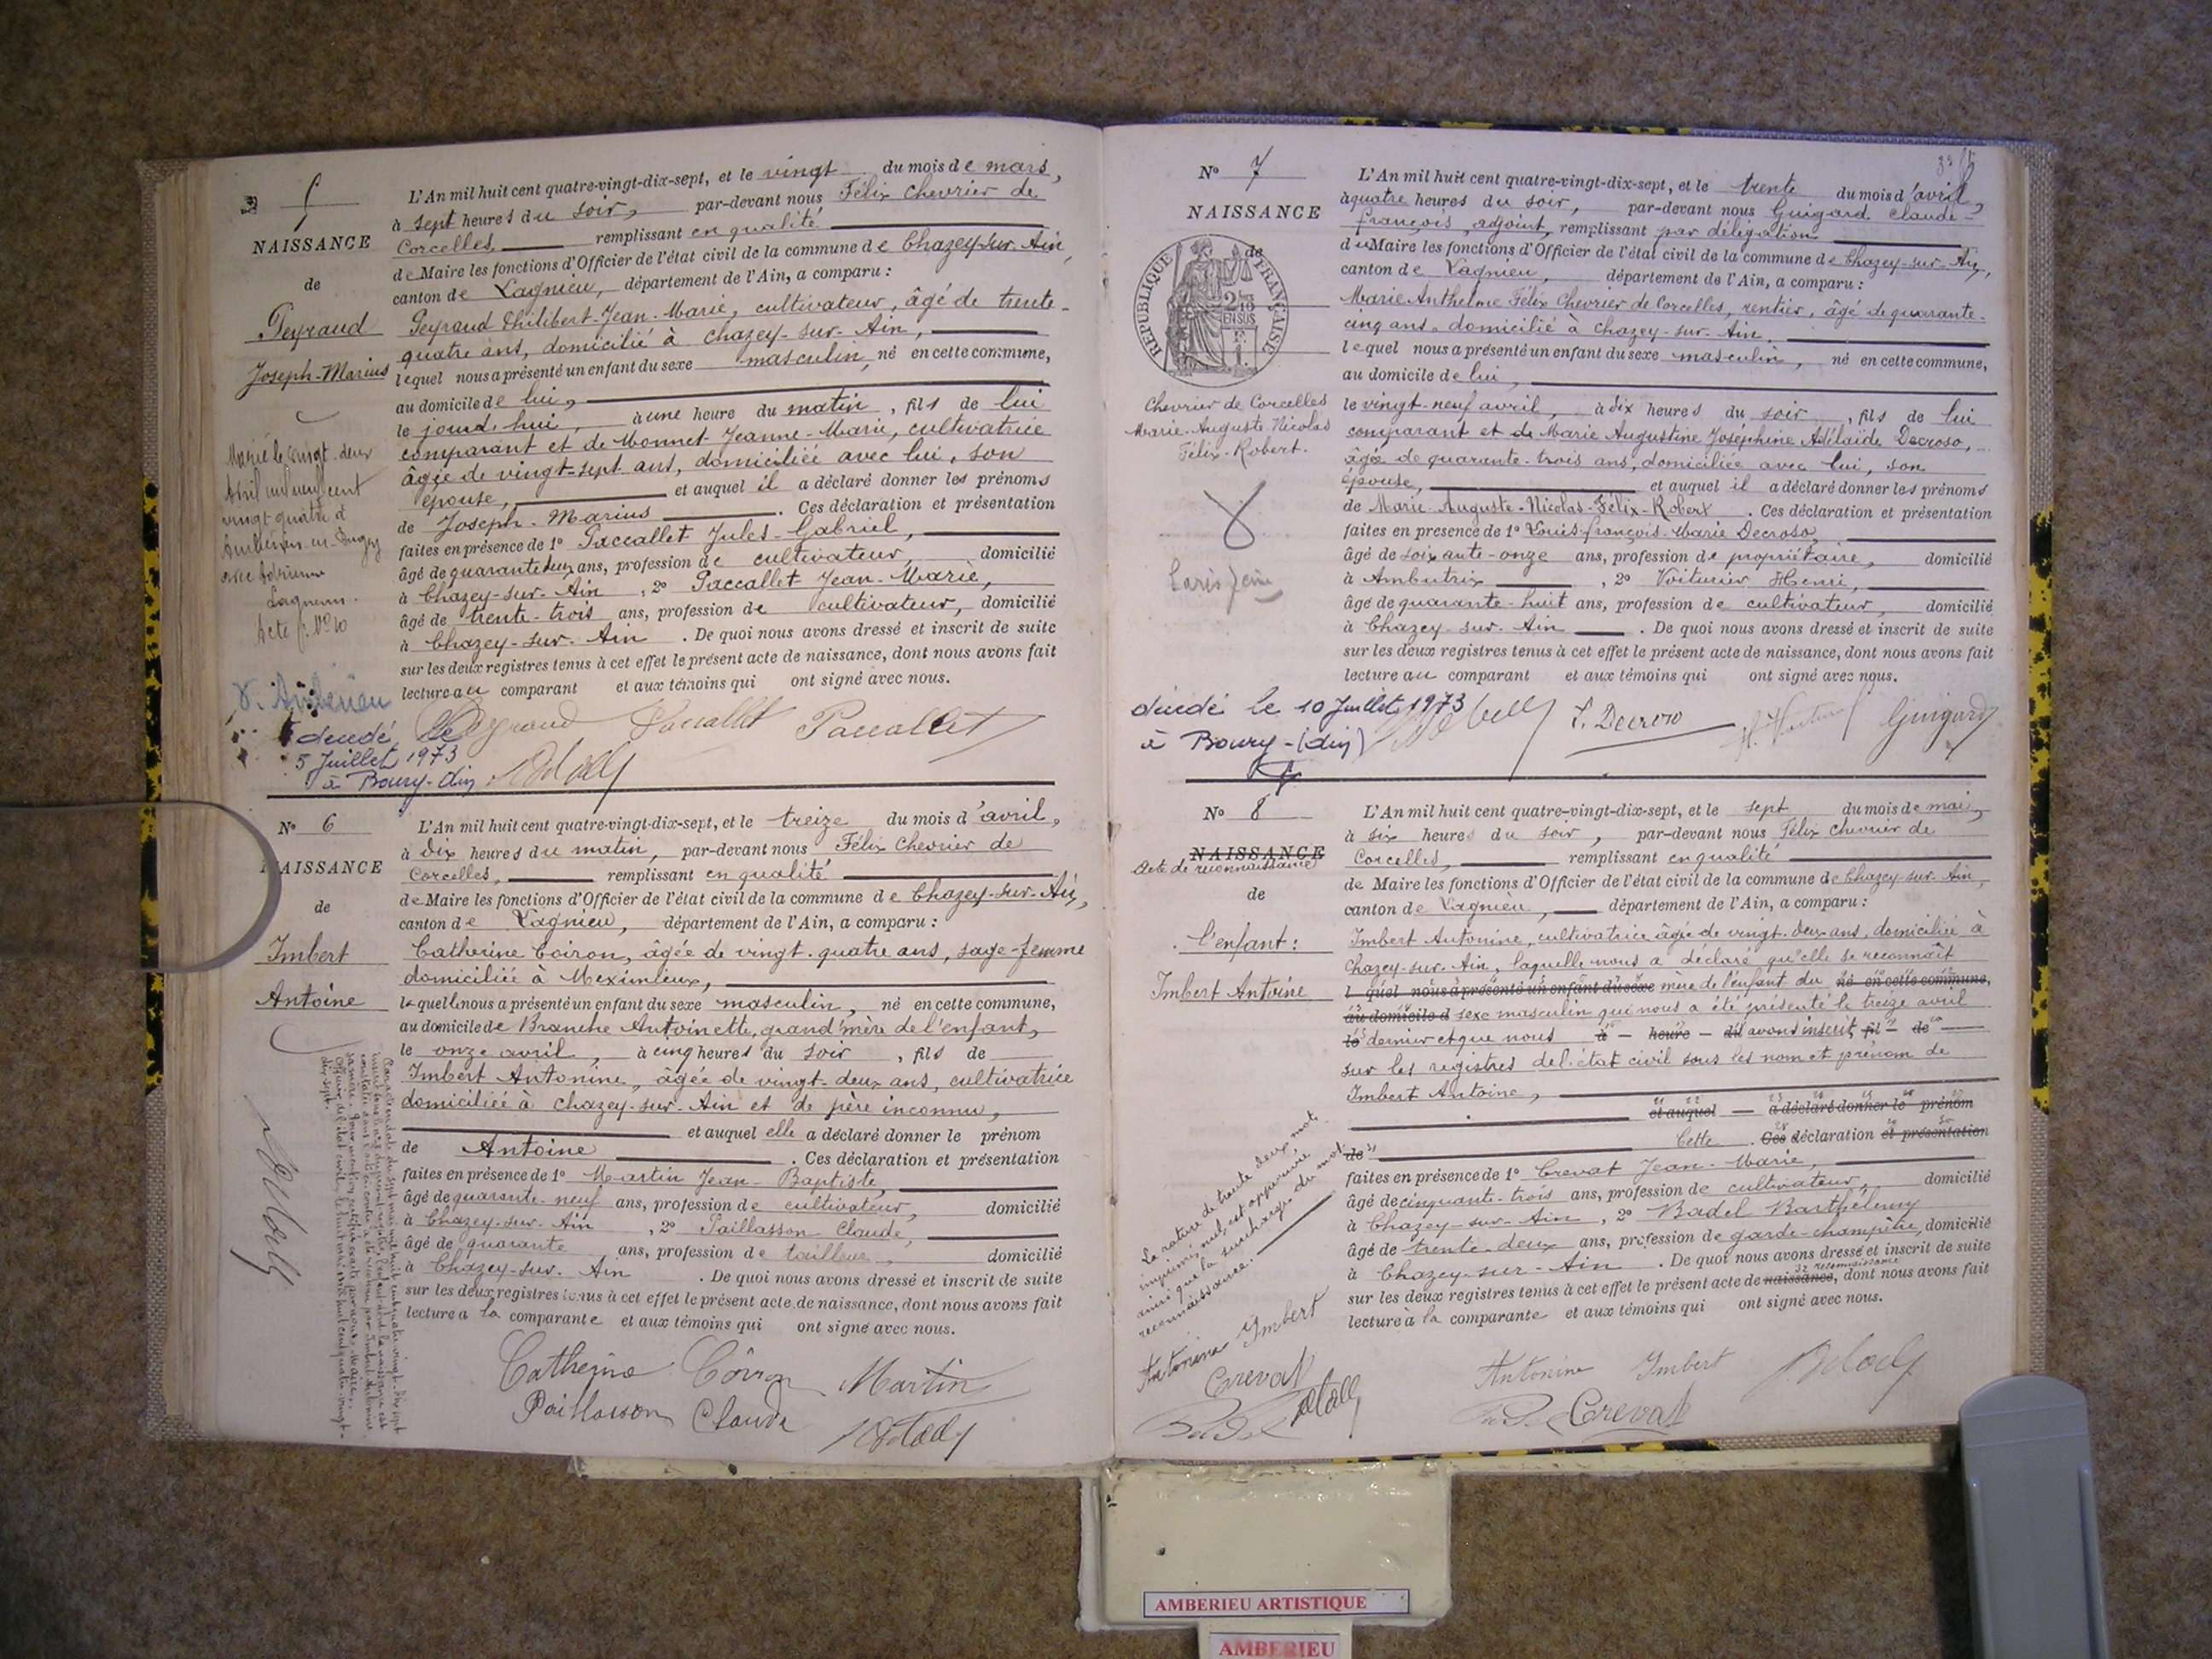 5
NAISSANCE
de
Peyraud
Joseph-Marius
Marié le vingt-deux
Avril mil neuf cent
vingt quatre à
Ambérieu-en-Bugey
avec
Acte
V. Ambérieu
décédé le
5 Juillet 1973
à Bourg-
L'An mil huit cent quatre-vingt-dix-sept, et le vingt du mois de mars,
à sept heures du soir, par-devant nous Félix Chevrier de
Corcelles remplissant en qualité
de Maire les fonctions d'Officier de l'état civil de la commune de Chazey-sur-Ain,
canton de Lagnieu, département de l'Ain, a comparu :
Peyraud Philibert-Jean-Marie, cultivateur, âgé de trente-
quatre ans, domicilié à Chazey-sur-Ain,
lequel nous a présenté un enfant du sexe masculin, né en cette commune,
au domicile de lui,
le jourd'hui, à une heure du matin, fils de lui
comparant et de Monnet Jeanne-Marie, cultivatrice
âgée de vingt-sept ans, domiciliée avec lui, son
épouse, et auquel il a déclaré donner les prénoms
de Joseph-Marius . Ces déclaration et présentation
faites en présence de 1° Paccallet Jules-Gabriel,
âgé de quarante deux ans, profession de cultivateur, domicilié
à Chazey-sur-Ain, 2° Paccallet Jean-Marie,
âgé de trente-trois ans, profession de cultivateur, domicilié
à Chazey-sur-Ain . De quoi nous avons dressé et inscrit de suite
sur les deux registres tenus à cet effet le présent acte de naissance, dont nous avons fait
lecture au comparant et aux témoins qui ont signé avec nous.
Peyraud Paccallet Paccallet
N° 6
NAISSANCE
de
Imbert
Antoine
L'An mil huit cent quatre-vingt-dix-sept, et le treize du mois d'avril,
à dix heures du matin, par-devant nous Félix Chevrier de
Corcelles, remplissant en qualité
de Maire les fonctions d'Officier de l'état civil de la commune de Chazey-sur-Ain,
canton de Lagnieu, département de l'Ain, a comparu :
Catherine Coiron, âgée de vingt-quatre ans, sage-femme
domiciliée à Meximieux,
laquelle nous a présenté un enfant du sexe masculin, né en cette commune,
au domicile de Branche Antoinette, grand'mère de l'enfant,
le onze avril, à cinq heures du soir, fils de
Imbert Antonine, âgée de vingt-deux ans, cultivatrice
domiciliée à Chazey-sur-Ain et de père inconnu,
et auquel elle a déclaré donner le prénom
de Antoine . Ces déclaration et présentation
faites en présence de 1° Martin Jean-Baptiste,
âgé de quarante-neuf ans, profession de cultivateur, domicilié
à Chazey-sur-Ain, 2° Paillasson Claude,
âgé de quarante ans, profession de tailleur, domicilié
à Chazey-sur-Ain . De quoi nous avons dressé et inscrit de suite
sur les deux registres tenus à cet effet le présent acte de naissance, dont nous avons fait
lecture à la comparante et aux témoins qui ont signé avec nous.
Catherine Coiron Martin
Paillasson Claude
N° 7
NAISSANCE
de
REPUBLIQUE FRANÇAISE
2/10 EN SUS
Chevrier de Corcelles
Marie-Auguste-Nicolas
Félix-Robert.
décédé le 10 Juillet 1973
à Bourg-
L'An mil huit cent quatre-vingt-dix-sept, et le trente du mois d'avril,
à quatre heures du soir, par-devant nous Guigard Claude-
François, adjoint, remplissant par délégation
du Maire les fonctions d'Officier de l'état civil de la commune de Chazey-sur-Ain,
canton de Lagnieu, département de l'Ain, a comparu :
Marie Anthelme Félix Chevrier de Corcelles, rentier, âgé de quarante-
cinq ans, domicilié à Chazey-sur-Ain,
lequel nous a présenté un enfant du sexe masculin, né en cette commune,
au domicile de lui,
le vingt-neuf avril, à dix heures du soir, fils de lui
comparant et de Marie Augustine Joséphine Adélaïde Decroso,
âgée de quarante-trois ans, domiciliée avec lui, son
épouse, et auquel il a déclaré donner les prénoms
de Marie-Auguste-Nicolas-Félix-Robert . Ces déclaration et présentation
faites en présence de 1° Louis-François-Marie Decroso,
âgé de soixante-onze ans, profession de propriétaire, domicilié
à Ambutrix, 2° Voiturier Henri,
âgé de quarante-huit ans, profession de cultivateur, domicilié
à Chazey-sur-Ain . De quoi nous avons dressé et inscrit de suite
sur les deux registres tenus à cet effet le présent acte de naissance, dont nous avons fait
lecture au comparant et aux témoins qui ont signé avec nous.
Decroso Guigard
N° 8
NAISSANCE
Acte de reconnaissance
de
l'enfant :
Imbert Antoine
L'An mil huit cent quatre-vingt-dix-sept, et le sept du mois de mai,
à six heures du soir, par-devant nous Félix Chevrier de
Corcelles, remplissant en qualité
de Maire les fonctions d'Officier de l'état civil de la commune de Chazey-sur-Ain,
canton de Lagnieu, département de l'Ain, a comparu :
Imbert Antonine, cultivatrice âgée de vingt-deux ans, domiciliée à
Chazey-sur-Ain, laquelle nous a déclaré qu'elle se reconnaît
l quel nous a présenté un enfant du sexe mère de l'enfant du né en cette commune,
au domicile d sexe masculin qui nous a été présenté le treize avril
le dernier et que nous à heure du avons inscrit fil de
sur les registres de l'état civil sous les nom et prénom de
Imbert Antoine,
et auquel a déclaré donner le prénom
de Cette . Ces déclaration et présentation
faites en présence de 1° Crevat Jean-Marie,
âgé de cinquante-trois ans, profession de cultivateur, domicilié
à Chazey-sur-Ain, 2° Badel Barthélemy
âgé de trente-deux ans, profession de garde-champêtre, domicilié
à Chazey-sur-Ain . De quoi nous avons dressé et inscrit de suite
sur les deux registres tenus à cet effet le présent acte de naissance reconnaissance, dont nous avons fait
lecture à la comparante et aux témoins qui ont signé avec nous.
La rature de trente deux mots
imprimés, nuls, est approuvée
ainsi que la surcharge du mot
reconnaissance.
Antonine Imbert
Crevat
Antonine Imbert
Crevat
AMBERIEU ARTISTIQUE
AMBERIEU